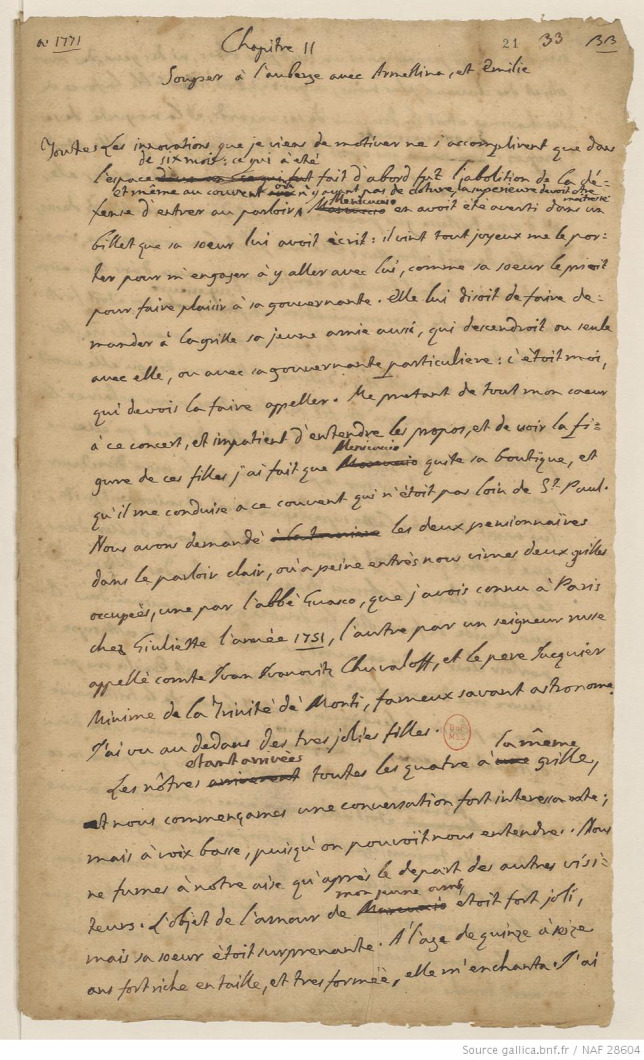 a: 1771
21 33 BB
Chapitre II
Souper à l'auberge avec Armelline, et Emilie
Toutes les innovations que je viens de motiver ne s'accomplirent que dans
de six mois: ce qui a été
l'espace fait d'abord fut l'abolition de la dé=
et même au couvent où n'y ayant pas de cloture, la superieure devoit être
maitresse
fense d'entrer au parloir, Menicuccio en avoit été averti dans un
billet que sa soeur lui avoit écrit: il vint tout joyeux me le por=
ter pour m'engager à y aller avec lui, comme sa soeur le prioit
pour faire plaisir à sa gouvernante. Elle lui disoit de faire de=
mander à la grille sa jeune amie aussi, qui descendroit ou seule
avec elle, ou avec sa gouvernante particuliere: c'étoit moi,
qui devois la faire appeller. Me pretant de tout mon coeur
à ce concert, et impatient d'entendre les propos, et de voir la fi=
gure de ces filles j'ai fait que Menicuccio quite sa boutique, et
qu'il me conduise a ce couvent qui n'étoit pas loin de St. Paul.
Nous avons demandé les deux pensionnaires
dans le parloir clair, où à peine entrés nous vimes deux grilles
occupées, une par l'abbé Guasco, que j'avois connu à Paris
chez Giuliette l'année 1751, l'autre par un seigneur russe
appellé comte Ivan Ivanovitz Chuvaloff, et le pere Jacquier
Minime de la Trinité de Monti, fameux savant astronome.
J'ai vu au dedans des tres jolies filles.
etant arrivées
la même
Les nôtres toutes les quatre à grille,
et nous commençames une conversation fort interessante;
mais à voix basse, puisqu'on pouvoit nous entendre. Nous
ne fumes à notre aise qu'après le depart des autres visi=
mon jeune ami
teurs. L'objet de l'amour de étoit fort joli,
mais sa soeur étoit surprenante. A l'age de quinze à seize
ans fort riche en taille, et tres formée, elle m'enchanta. J'ai
Source gallica.bnf.fr / NAF 28604